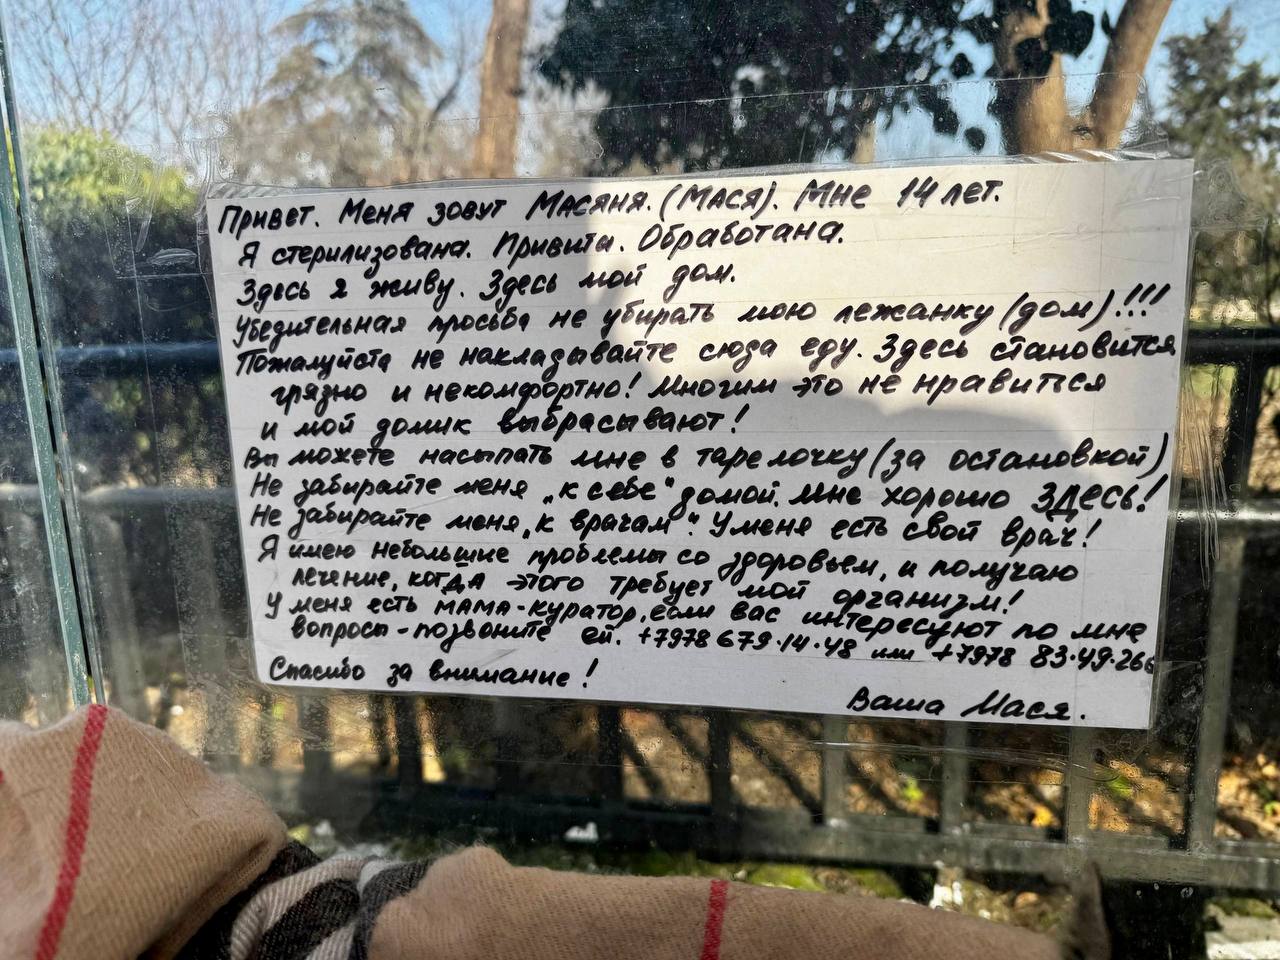 Привет. Меня зовут Масяня. (Мася). Мне 14 лет.
Я стерилизована. Привита. Обработана.
Здесь я живу. Здесь мой дом.
Убедительная просьба не убирать мою лежанку (дом)!!!
Пожалуйста не накладывайте сюда еду. Здесь становится
грязно и некомфортно! Многим это не нравиться
и мой домик выбрасывают!
Вы можете насыпать мне в тарелочку (за остановкой)
Не забирайте меня „к себе" домой. Мне хорошо ЗДЕСЬ!
Не забирайте меня „к врачам". У меня есть свой врач!
Я имею небольшие проблемы со здоровьем, и получаю
лечение, когда этого требует мой организм!
У меня есть мама-куратор, если вас интересуют по мне
вопросы - позвоните ей. +7978 679·14·48 или +7978 83·49·266
Спасибо за внимание!
Ваша Мася.